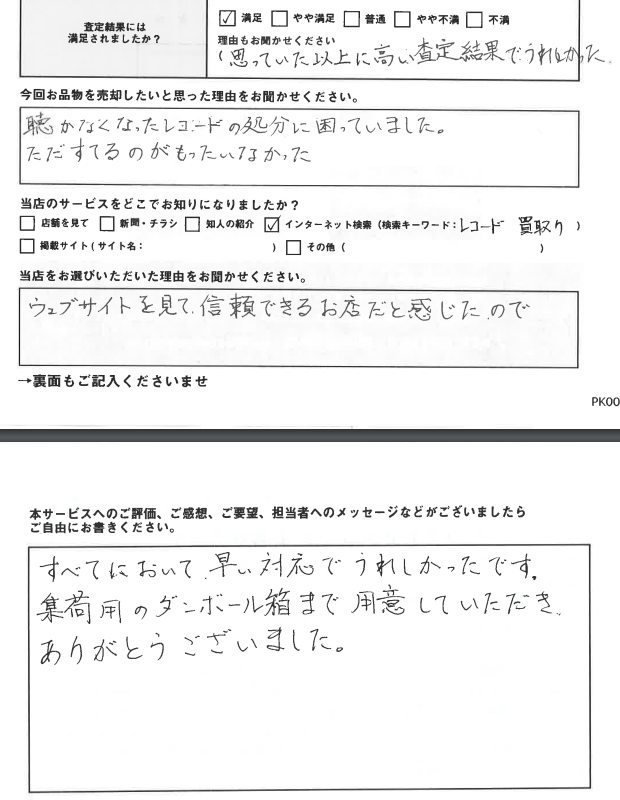 査定結果には
満足されましたか？
☑ 満足 □ やや満足 □ 普通 □ やや不満 □ 不満
理由もお聞かせください
（思っていた以上に高い査定結果でうれしかった。
今回お品物を売却したいと思った理由をお聞かせください。
聴かなくなったレコードの処分に困っていました。
ただすてるのがもったいなかった
当店のサービスをどこでお知りになりましたか？
□ 店舗を見て □ 新聞・チラシ □ 知人の紹介 ☑ インターネット検索（検索キーワード：レコード 買取り ）
□ 掲載サイト（サイト名： ） □ その他（ ）
当店をお選びいただいた理由をお聞かせください。
ウェブサイトを見て、信頼できるお店だと感じたので
→裏面もご記入くださいませ
PK00
本サービスへのご評価、ご感想、ご要望、担当者へのメッセージなどがございましたら
ご自由にお書きください。
すべてにおいて、早い対応でうれしかったです。
集荷用のダンボール箱まで用意していただき、
ありがとうございました。